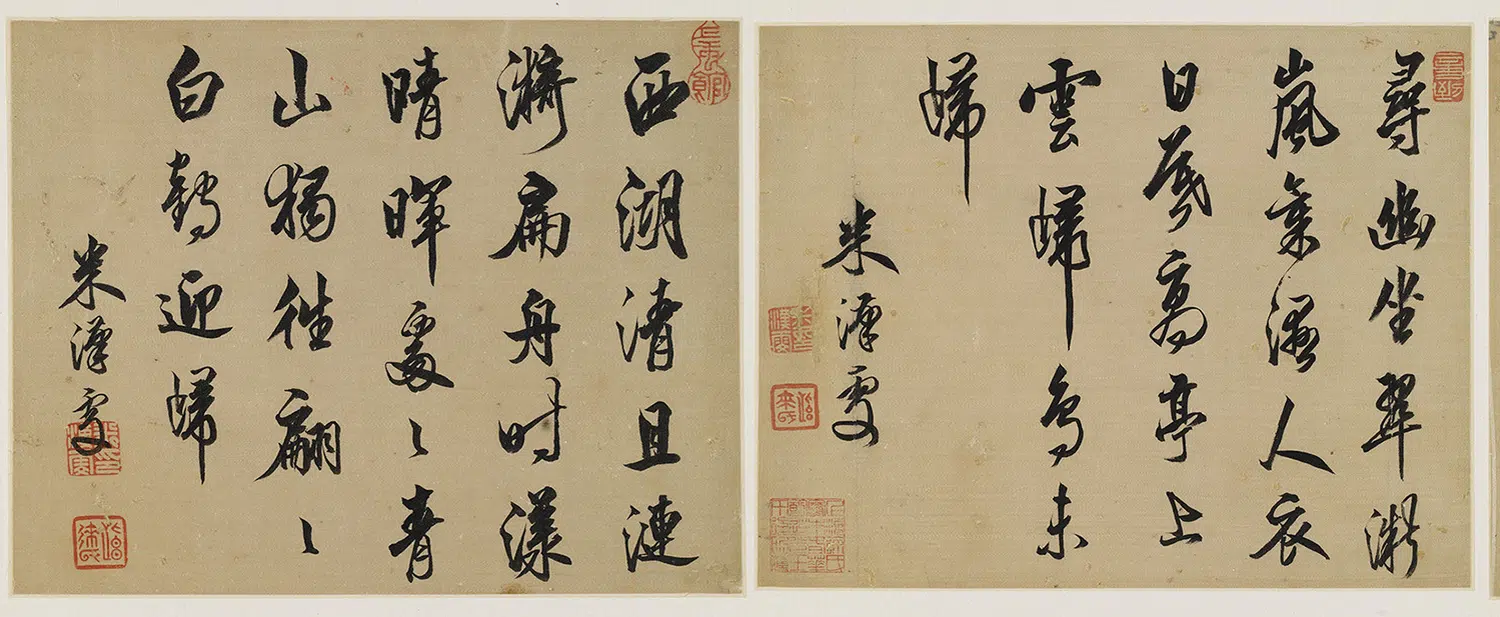 尋幽坐翠微
嵐氣濕人衣
日暮高亭上
雲歸鳥未
歸
米漢雯
西湖清且漣
漪扁舟时漾
晴暉處〻青
山獨往翩〻
白鶴迎歸
米漢雯